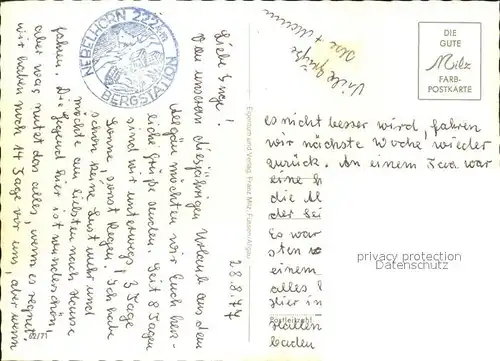 NEBELHORN 2224m
BERGSTATION
28.8.77
Liebe Inge!
Von unserem diesjährigen Urlaub aus dem
Allgäu möchten wir Euch herz-
liche Grüße senden. Seit 8 Tagen
sind wir unterwegs, 3 Tage
Sonne, sonst Regen. Ich habe
schon keine Lust mehr und
möchte am liebsten nach Hause
fahren. Die Gegend hier ist wunderschön,
aber was nutzt das alles, wenn es regnet.
Wir haben noch 14 Tage vor uns, aber wenn
es nicht besser wird, fahren
wir nächste Woche wieder
zurück. An einem Tag war
eine
die
der
Es war
sten
einem
alles
Hier in
baden
Viele Grüße
DIE
GUTE
Milz
FARB-
POSTKARTE
Eigentum und Verlag: Franz Milz, Füssen-Allgäu
Postleitzahl
62/71
privacy protection
Datenschutz